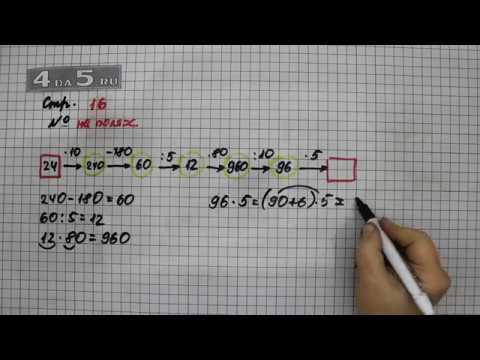 4 DA 5.RU
Стр. 16
№ на полях
·10 -180 :5 ·80 :10 ·5
24 240 60 12 960 96
240-180=60
60:5=12
12·80=960
96·5=(90+6)·5=